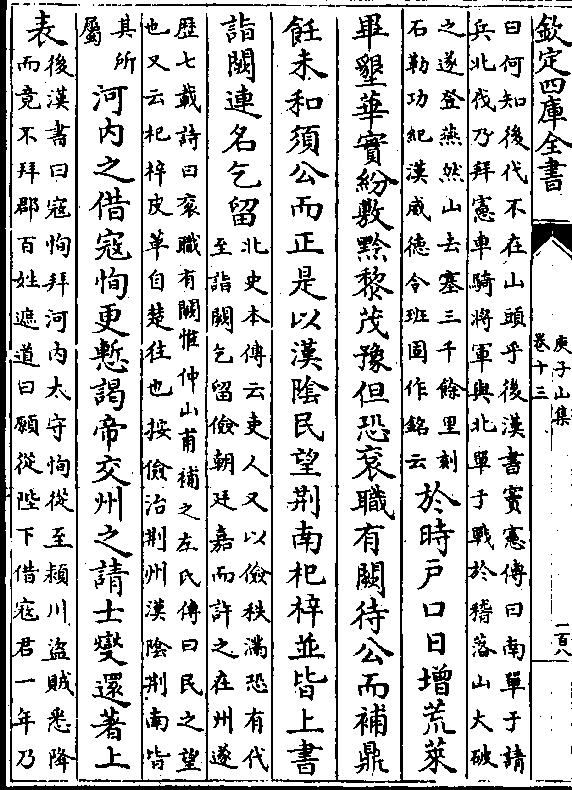 欽定四庫全書
庾子山集
卷十三
一百八
曰何知後代不在山頭乎後漢書竇憲傳曰南單于請
兵北伐乃拜憲車騎將軍與北單于戰於稽落山大破
之遂登燕然山去塞三千餘里刻
石勒功紀漢威德令班固作銘云
於時戶口日增荒萊
畢墾華實紛敷黔黎茂豫但恐袞職有闕待公而補鼎
飪未和須公而正是以漢陰民望荆南杞梓並皆上書
詣闕連名乞留
北史本傳云吏人又以儉秩滿恐有代
至詣闕乞留儉朝廷嘉而許之在州遂
歴七載詩曰袞職有闕惟仲山甫補之左氏傳曰民之望
也又云杞梓皮革自楚往也按儉治荆州漢陰荆南皆
其所
屬
河内之借寇恂更慙謁帝交州之請士燮還著上
表
後漢書曰寇恂拜河内太守恂從至潁川盜賊悉降
而竟不拜郡百姓遮道曰願從陛下借寇君一年乃